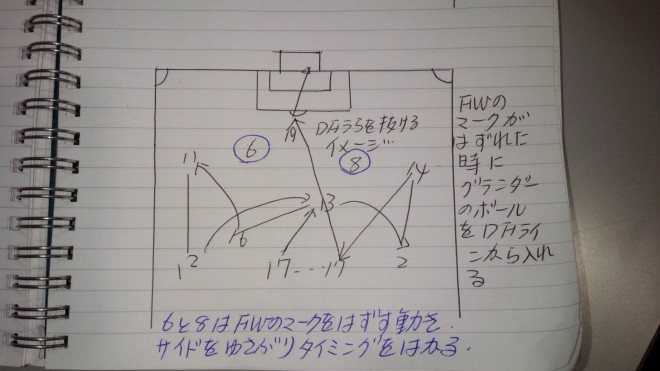 DFラうを抜ける
イメージ
19
6
8
11
14
13
16
12
17---17
2
FWの
マークが
はずれた
時に
グランダー
のボール
をDFライ
ンから入れ
る
6と8はFWのマークをはずす動きを.
サイドをゆさぶりタイミングをはかる.